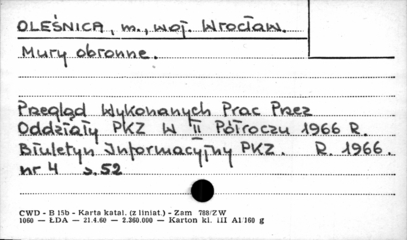 OLEŚNICA, m., woj. Wrocław.
Mury obronne.
Przegląd Wykonanych Prac Przez
Oddziały PKZ W II Półroczu 1966 R.
Biuletyn Informacyjny PKZ. R. 1966.
nr 4 s. 52
CWD - B 15b - Karta katal. (z liniat.) - Zam 788/ZW
1060 — ŁDA — 21.4.60 - 2.360.000 — Karton kl. III A1 160 g